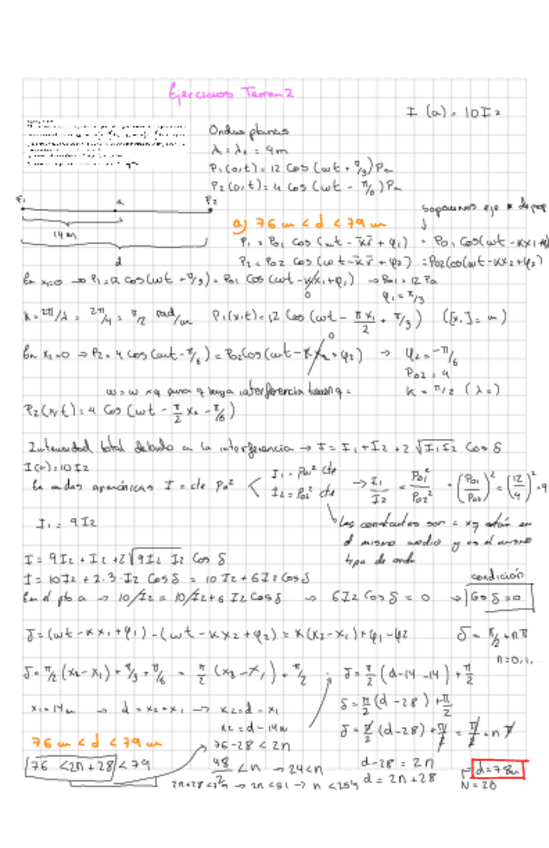 Ejercicios Tema 2
I (a) = 10 I2
Ondas planas
λ1 = λ2 = 4m
P1(0,t) = 12 Cos(ωt + π/3) Pa
P2(0,t) = 4 Cos(ωt - π/6) Pa
F1 a F2
14 m
d
a) 76 m < d < 79 m
Suponemos eje x de prop
P1 = P01 Cos(ωt - k̄r̄ + φ1) = P01 Cos(ωt - kx1 + φ1)
P2 = P02 Cos(ωt - k̄r̄ + φ2) = P02 Cos(ωt - kx2 + φ2)
En x1=0 → P1 = 12 cos(ωt + π/3) = P01 Cos(ωt - kx1 + φ1) → P01 = 12 Pa
0
φ1 = π/3
k = 2π/λ = 2π/4 = π/2 rad/m P1(x,t) = 12 Cos(ωt - πx1/2 + π/3) ([x1] = m)
0
En x2=0 → P2 = 4 cos(ωt - π/6) = P02 Cos(ωt - kx2 + φ2) → φ2 = -π/6
P02 = 4
k = π/2 (λ=)
ω = ω xq para q haya interferencia
P2(x,t) = 4 Cos(ωt - π/2 x2 - π/6)
Intensidad total debido a la interferencia → I = I1 + I2 + 2 √I1 I2 Cos δ
I(a) = 10 I2
En ondas armónicas I = cte P0² < I1 = P01² cte
I2 = P02² cte
→ I1/I2 = P01²/P02² = (P01/P02)² = (12/4)² = 9
I1 = 9 I2
Las constantes son = xq están en
el mismo medio y es el mismo
tipo de onda
I = 9I2 + I2 + 2√9I2 I2 Cos δ
I = 10I2 + 2·3·I2 Cos δ = 10 I2 + 6 I2 Cos δ
condición
En el pto a → 10 I2 = 10 I2 + 6 I2 Cos δ → 6 I2 Cos δ = 0 → Cos δ = 0
δ = (ωt - kx1 + φ1) - (ωt - kx2 + φ2) = k(x2 - x1) + φ1 - φ2 δ = π/2 + nπ
n = 0, 1,
δ = π/2 (x2 - x1) + π/3 + π/6 = π/2 (x2 - x1) + π/2 δ = π/2 (d - 14 - 14) + π/2
x1 = 14m → d = x2 + x1 → x2 = d - x1
x2 = d - 14m
δ = π/2 (d - 28) + π/2
δ = π/2 (d - 28) + π/2 = π/2 + nπ
76 m < d < 79 m
76 - 28 < 2n
d - 28 = 2n
76 < 2n + 28 < 79
48/2 < n → 24 < n
d = 2n + 28
d = 78m
2n + 28 < 79 → 2n < 51 → n < 25'5